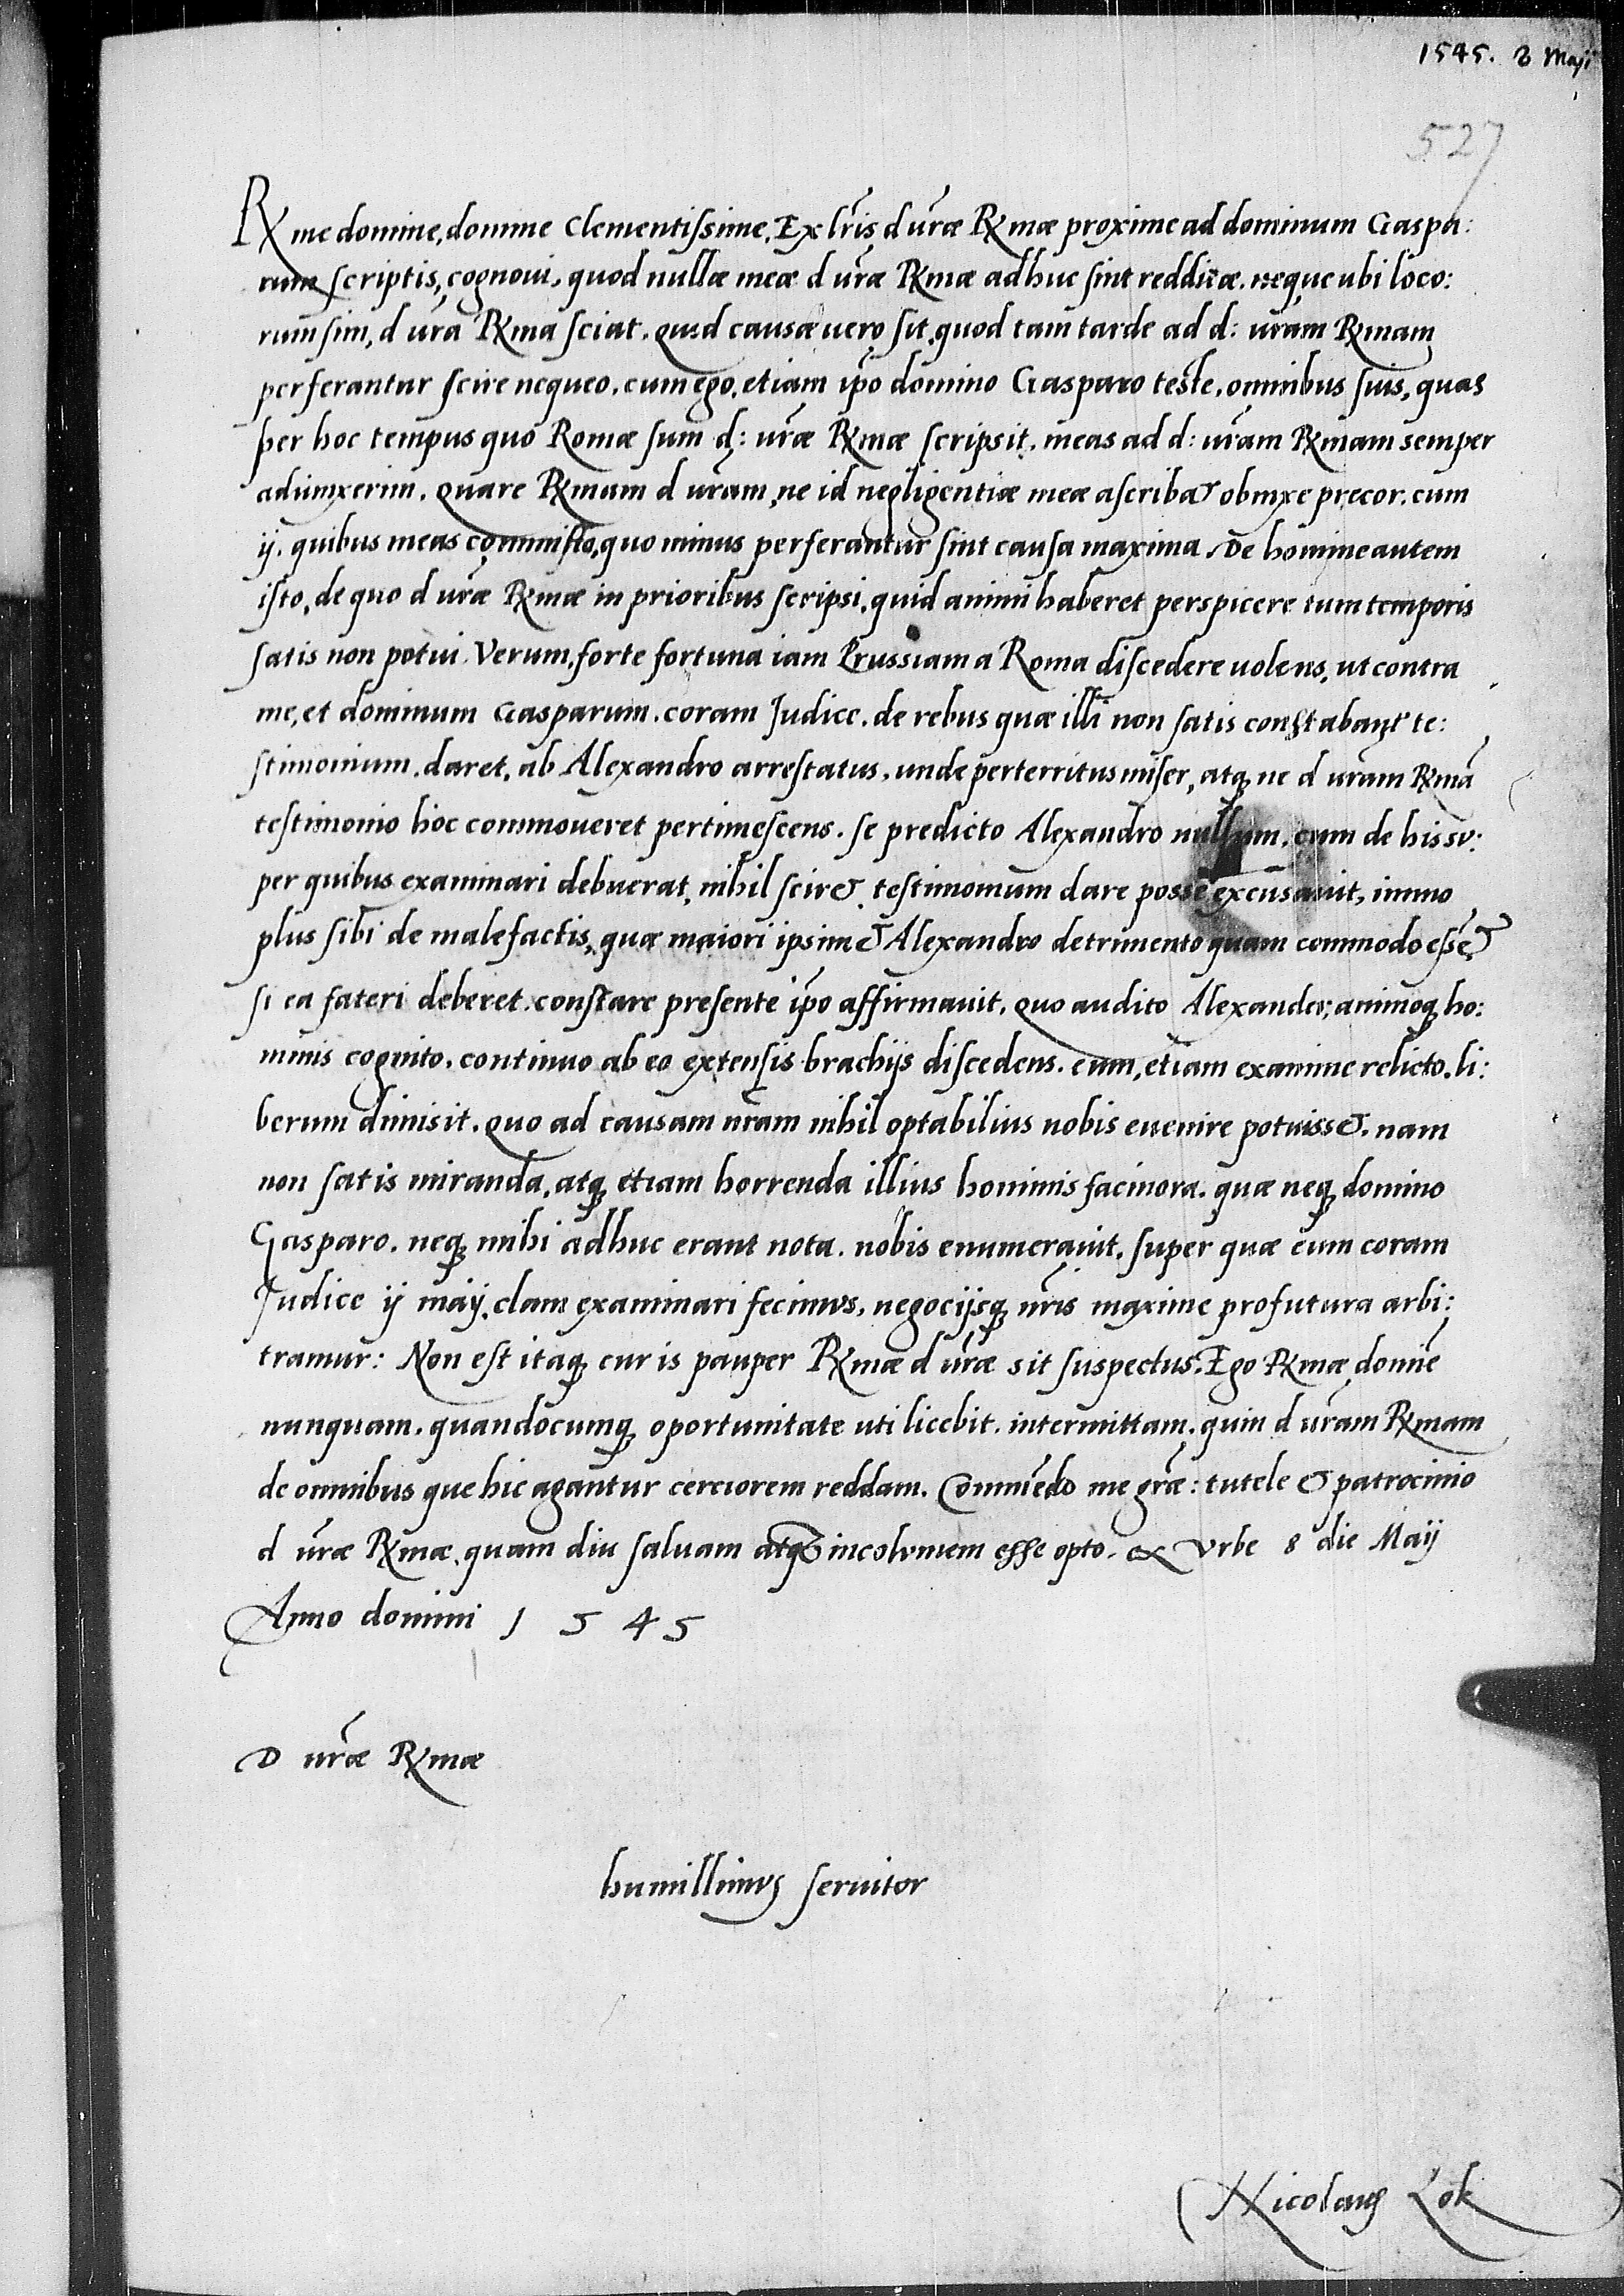 1545. 8 Maji
527
Rme domine, domine Clementissime, Ex lris d vrae Rmae proxime ad dominum Gaspa:
rum scriptis, cognovi, quod nullae meae d vrae Rmae adhuc sint redditae. neque ubi loco:
rum sim, d vra Rma sciat. Quid causae vero sit, quod tam tarde ad d: vram Rmam
perferantur scire nequeo. cum ego, etiam ipo domino Gasparo teste, omnibus suis, quas
per hoc tempus quo Romae sum d: vrae Rmae scripsit, meas ad d: vram Rmam semper
adiunxerim. Quare Rmam d vram, ne id negligentiae meae ascribat obnixe precor. cum
ij. quibus meas committo, quo minus perferantur sint causa maxima. De homine autem
isto, de quo d vrae Rmae in prioribus scripsi, quid animi haberet perspicere tum temporis
satis non potui. Verum, forte fortuna iam Prussiam a Roma discedere uolens, ut contra
me, et dominum Gasparum. coram Judice. de rebus quae illi non satis constabant te:
stimonium. daret, ab Alexandro arrestatus, unde perterritus miser, atq ne d vram Rma
testimonio hoc commoveret pertimescens. se predicto Alexandro nullum, cum de his su:
per quibus examinari debuerat, nihil sciret, testimonium dare posse excusavit, immo
plus sibi de malefactis, quae maiori ipsimet Alexandro detrimento quam commodo esset
si ea fateri deberet. constare presente ipo affirmavit. Quo audito Alexander, animoq ho:
minis cognito, continuo ab eo extensis brachijs discedens. eum, etiam examine relicto. li:
berum dimisit. Quo ad causam nram nihil optabilius nobis euenire potuisset. nam
non satis miranda, atq etiam horrenda illius hominis facinora. quae neq domino
Gasparo. neq mihi adhuc erant nota. nobis enumeravit. super quae eum coram
Judice ij maij. clam examinari fecimus. negocijsq nris maxime profutura arbi:
tramur: Non est itaq cur is pauper Rmae d vrae sit suspectus. Ego Rmae domine
nunquam. quandocumq oportunitate uti licebit. intermittam. quin d vram Rmam
de omnibus que hic agantur cerciorem reddam. Commedo me grae: tutele et patrocinio
d vrae Rmae. quam diu saluam atque incolumem esse opto. ex Vrbe 8 die Maij
Anno domini 1545
D vrae Rmae
humillimus seruitor
Nicolaus Lok